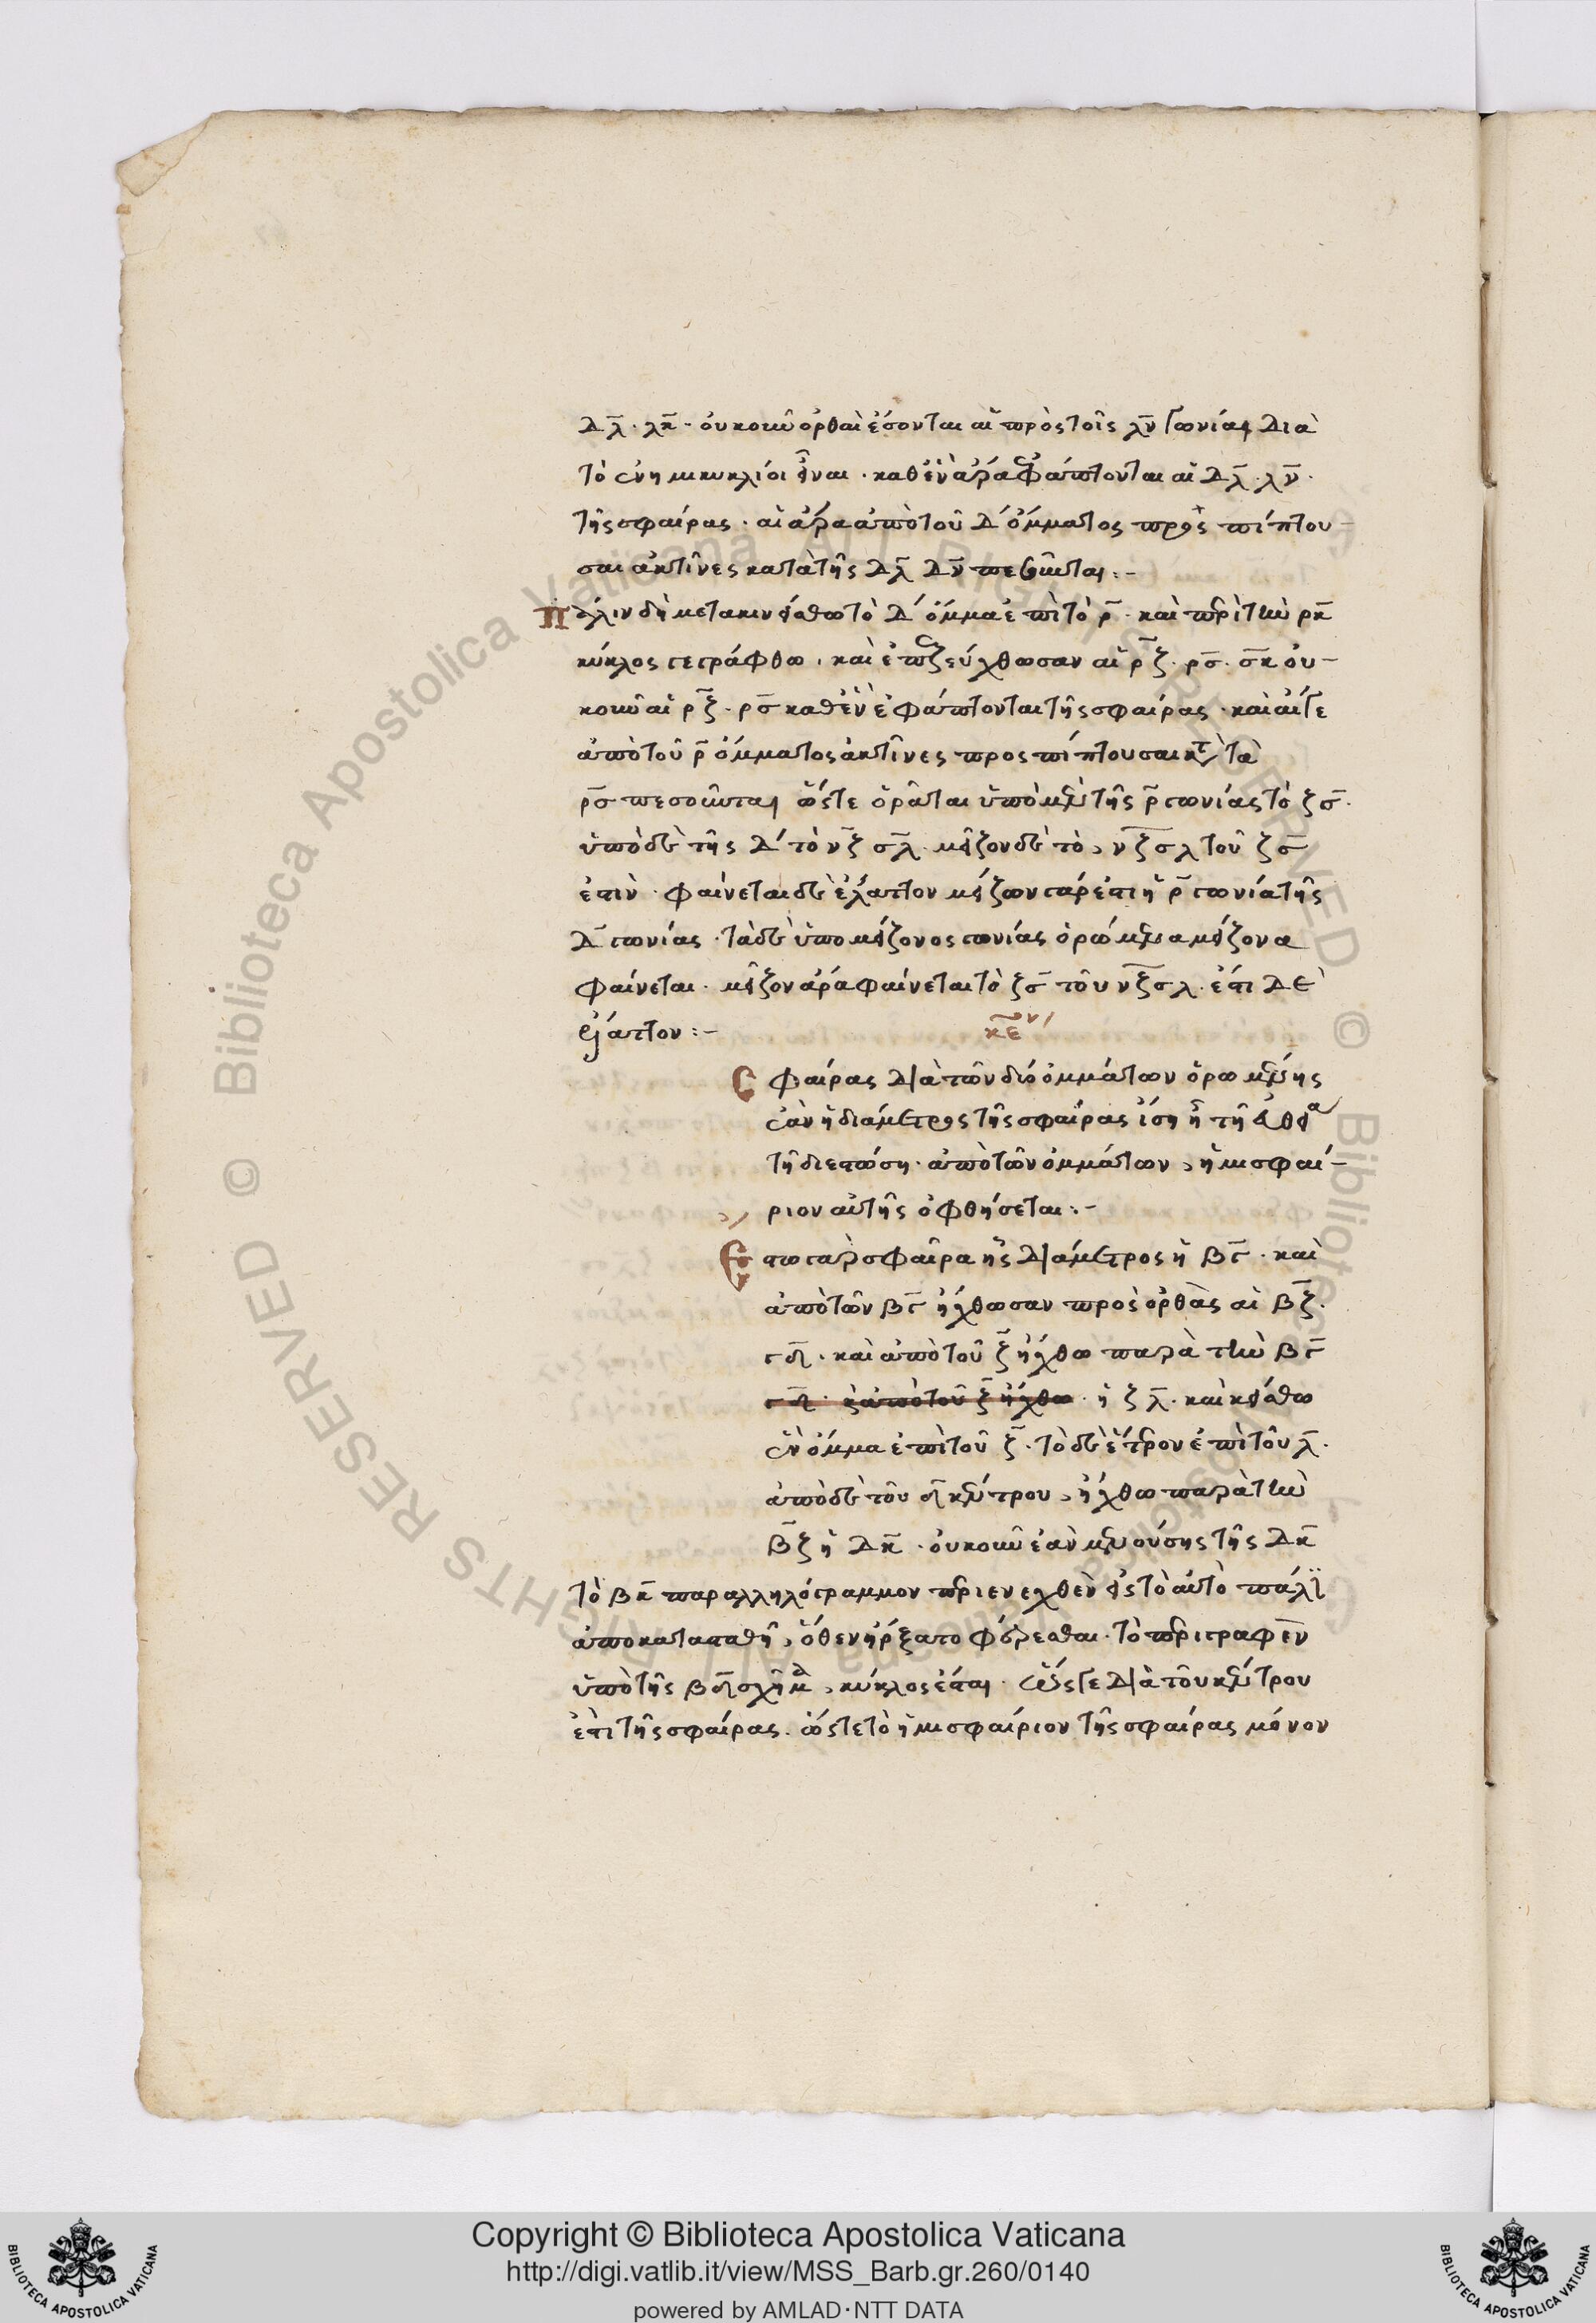 δλ̅· λκ̅· οὐκοῦν ὀρθαὶ ἔσονται αἱ πρὸς τοῖς λν̅ γωνίαι διὰ
τὸ ἐν ἡμικυκλίοι εἶναι· καθ ἓν ἄρα ἐφάπτονται αἱ δλ̅· λν̅·
τῆς σφαίρας· αἱ ἄρα ἀπὸ τοῦ δ ὄμματος προς πίπτου-
σαι ἀκτῖνες κατὰ τῆς δλ̅ δν̅ πεσοῦνται:-
Πάλιν δὴ μετακινείσθω τὸ δ ὄμμα ἐπὶ τὸ ρ̅· καὶ περὶ τὴν ρκ̅
κύκλος γεγράφθω· καὶ ἐπεζεύχθωσαν αἱ ρξ̅· ρσ̅· σκ̅ οὐ-
κοῦν αἱ ρξ̅· ρσ̅ καθ ἓν ἐφάπτονται τῆς σφαίρας· καὶ αἵ γε
ἀπὸ τοῦ ρ̅ ὄμματος ἀκτῖνες προς πίπτουσαι κατὰ τὰ
ρσ̅ πεσοῦνται ὥστε ὁρᾶται ὑπὸ μὲν τῆς ρ̅ γωνίας τὸ ξσ̅·
ὑπὸ δὲ τῆς δ τὸ νξ̅ σλ̅· μεῖζον δὲ τὸ, νξσλ τοῦ ξσ̅
ἐστιν· φαίνεται δὲ ἔλαττον μείζων γάρ ἐστι ἡ ρ̅ γωνία τῆς
δ̅ γωνίας· τὰ δὲ ὑπο μείζονος γωνίας ὁρώμενα μείζονα
φαίνεται· μεῖζον ἄρα φαίνεται τὸ ξσ̅ τοῦ νξ̅σλ· ἔστι δὲ
ἔλαττον:-
κε̅ον
Σφαίρας διὰ τῶν δύο ὀμμάτων ὁρωμένης
ἐὰν ἡ διάμετρος τῆς σφαίρας ἴση ᾖ τῇ εὐθείᾳ
τῇ διεστώσῃ· ἀπὸ τῶν ὀμμάτων, ἡμισφαί-
ριον αὐτῆς ὀφθήσεται:-
Ἔστω γὰρ σφαῖρα ἧς διάμετρος ἡ βγ̅· καὶ
ἀπὸ τῶν βγ̅ ἤχθωσαν προς ὀρθὰς αἱ βξ̅·
γδ̅· καὶ ἀπὸ τοῦ ξ̅ ἤχθω παρὰ τὴν βγ̅
γδ̅· καὶ ἀπὸ τοῦ ξ̅ ἤχθω· ἡ ξλ̅· καὶ κείσθω
ἓν ὄμμα ἐπὶ τοῦ ξ̅· τὸ δὲ ἕτερον ἐπὶ τοῦ λ̅·
ἀπὸ δὲ τοῦ δ̅ κέντρου, ἤχθω παρὰ τὴν
β̅ξ ἡ δκ̅· οὐκοῦν ἐὰν μενούσης τῆς δκ̅
τὸ βκ̅ παραλληλόγραμμον περιενεχθὲν εἰς τὸ αὐτὸ πάλιν
ἀποκατασταθῇ, ὅθεν ἤρξατο φέρεσθαι· τὸ περιγραφὲν
ὑπὸ τῆς βδ̅ σχῆμα, κύκλος ἔσται· ὥς γε διὰ τοῦ κέντρου
ἐστὶ τῆς σφαίρας· ὥστε τὸ ἡμισφαίριον τῆς σφαίρας μόνον
Copyright © Biblioteca Apostolica Vaticana
http://digi.vatlib.it/view/MSS_Barb.gr.260/0140
powered by AMLAD·NTT DATA